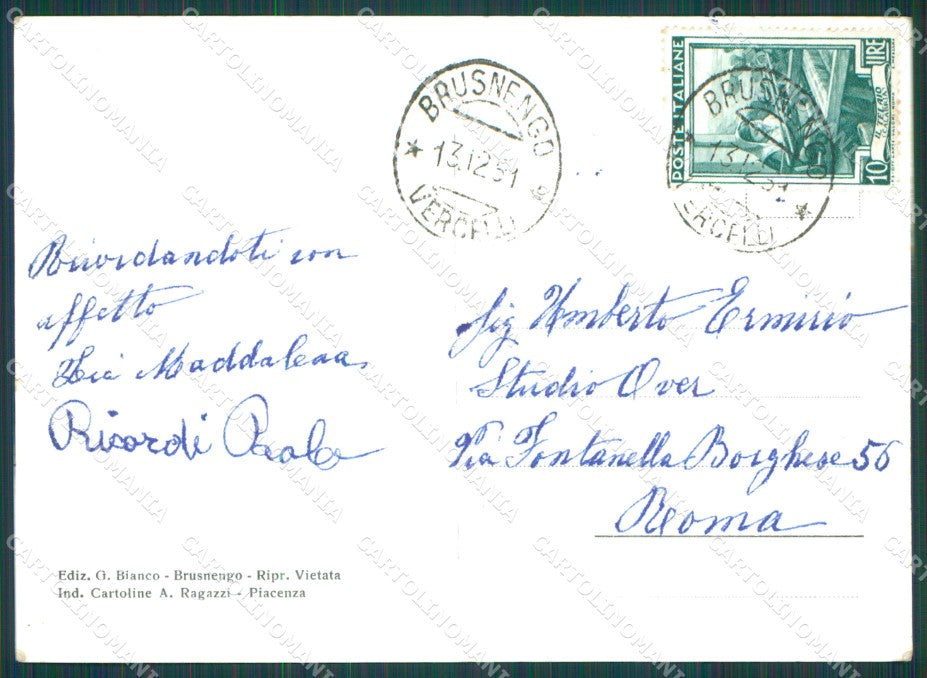 BRUSNENGO
13.12.51
VERCELLI
POSTE ITALIANE
10 LIRE
IL TELAIO
BRUSNENGO
13.12.51
VERCELLI
Ricordandoti con
affetto
Zia Maddalena
Ricordi Paolo
Sig Umberto Ermirio
Studio Over
Via Fontanella Borghese 56
Roma
Ediz. G. Bianco - Brusnengo - Ripr. Vietata
Ind. Cartoline A. Ragazzi - Piacenza
CARTOLINOMANIA